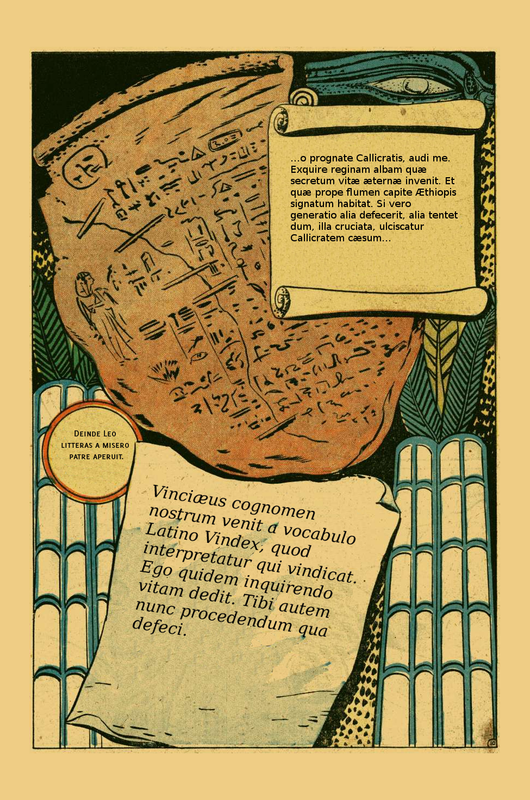 …o prognate Callicratis, audi me.
Exquire reginam albam quæ
secretum vitæ æternæ invenit. Et
quæ prope flumen capite Æthiopis
signatum habitat. Si vero
generatio alia defecerit, alia tentet
dum, illa cruciata, ulciscatur
Callicratem cæsum…
Deinde Leo
litteras a misero
patre aperuit.
Vinciæus cognomen
nostrum venit a vocabulo
Latino Vindex, quod
interpretatur qui vindicat.
Ego quidem inquirendo
vitam dedit. Tibi autem
nunc procedendum qua
defeci.